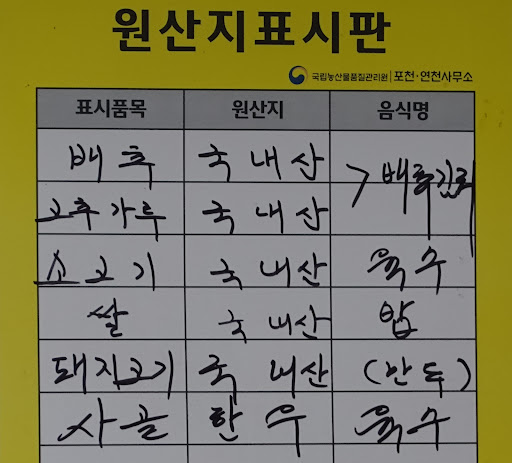 원산지표시판
국립농산물품질관리원 포천·연천사무소
표시품목 원산지 음식명
배추 국내산 배추김치
고추가루 국내산
소고기 국내산 육수
쌀 국내산 밥
돼지고기 국내산 (만두)
사골 한우 육수